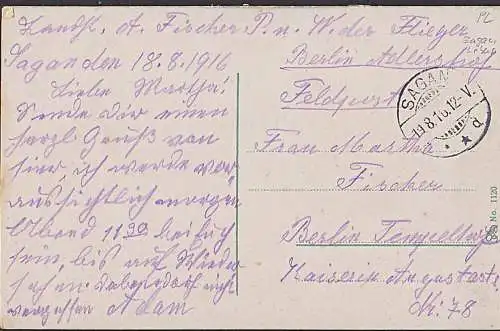 Landst. A. Fischer P. u. W. der Flieger
Berlin Adlershof
Sagan den 18.8.1916
Feldpost
Liebe Martha!
Sende dir einen
herzl Gruß von
hier, ich werde vor
aussichtlich morgen
Abend 11 30 bei euch
sein, bis auf Wieder
sehen
vergessen Adam
SAGAN
19.8.16. 12-V.
* * d
Frau Martha
Fischer
Berlin Tempelhof
Kaiserin Augustastr.
Nr: 78
No. 1120